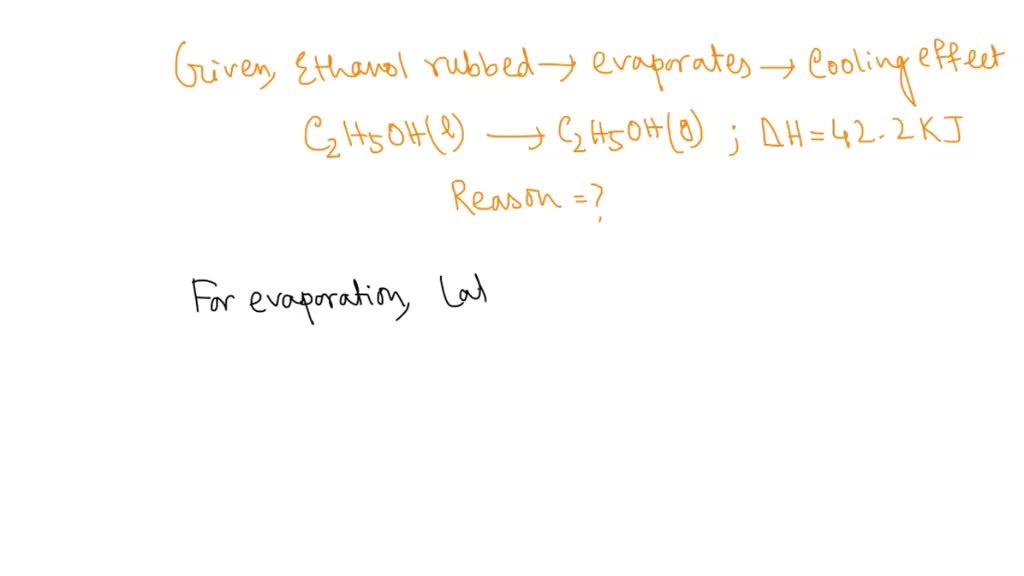 Given, Ethanol rubbed → evaporates → Cooling effect
C₂H₅OH(l) → C₂H₅OH(g) ; ΔH = 42.2 KJ
Reason = ?
For evaporation, Lat